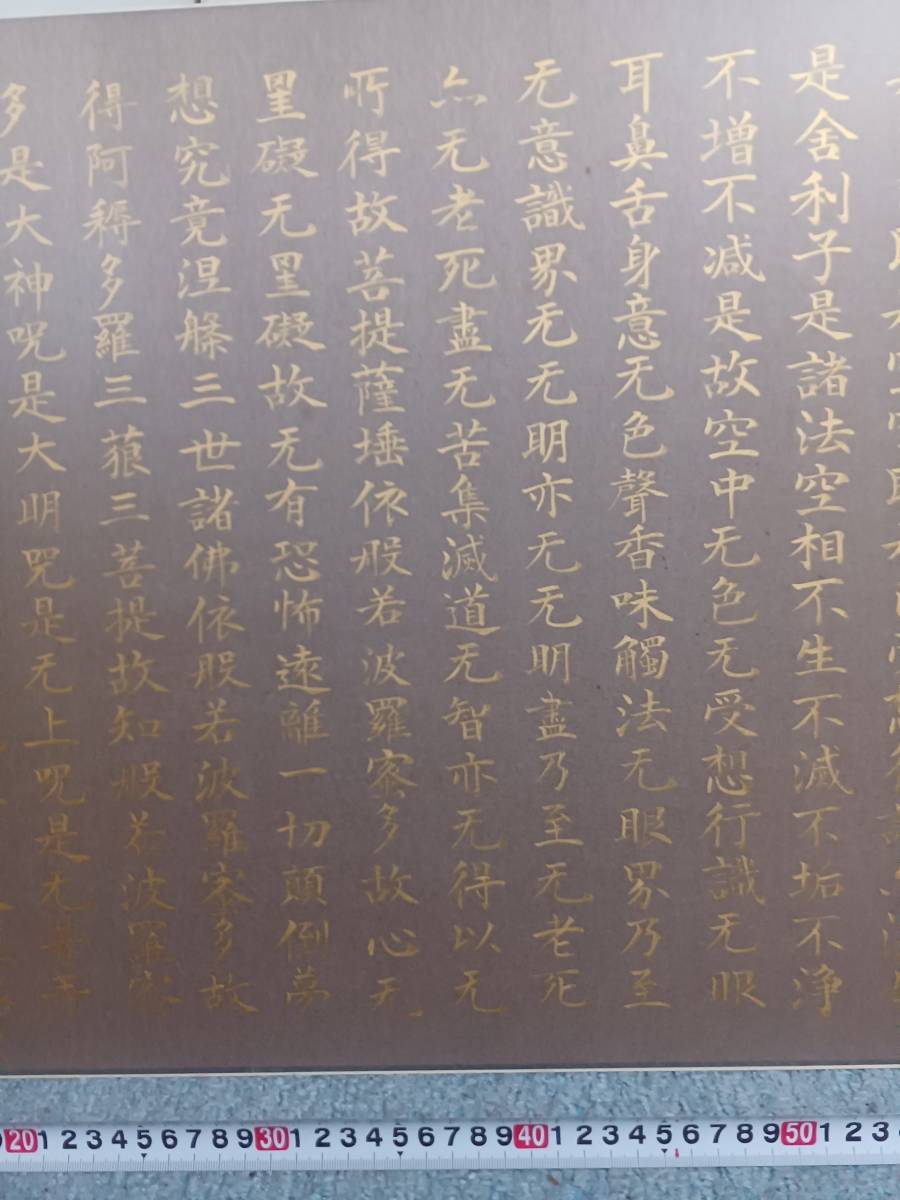 是舍利子是諸法空相不生不滅不垢不淨
不增不减是故空中无色无受想行識无眼
耳鼻舌身意无色聲香味觸法无眼界乃至
无意識界无无明亦无无明盡乃至无老死
亦无老死盡无苦集滅道无智亦无得以无
所得故菩提薩埵依般若波羅蜜多故心无
罣礙无罣礙故无有恐怖遠離一切顛倒夢
想究竟涅槃三世諸佛依般若波羅蜜多故
得阿耨多羅三藐三菩提故知般若波羅蜜
多是大神呪是大明呪是无上呪是无等等
20 1 2 3 4 5 6 7 8 9 30 1 2 3 4 5 6 7 8 9 40 1 2 3 4 5 6 7 8 9 50 1 2 3